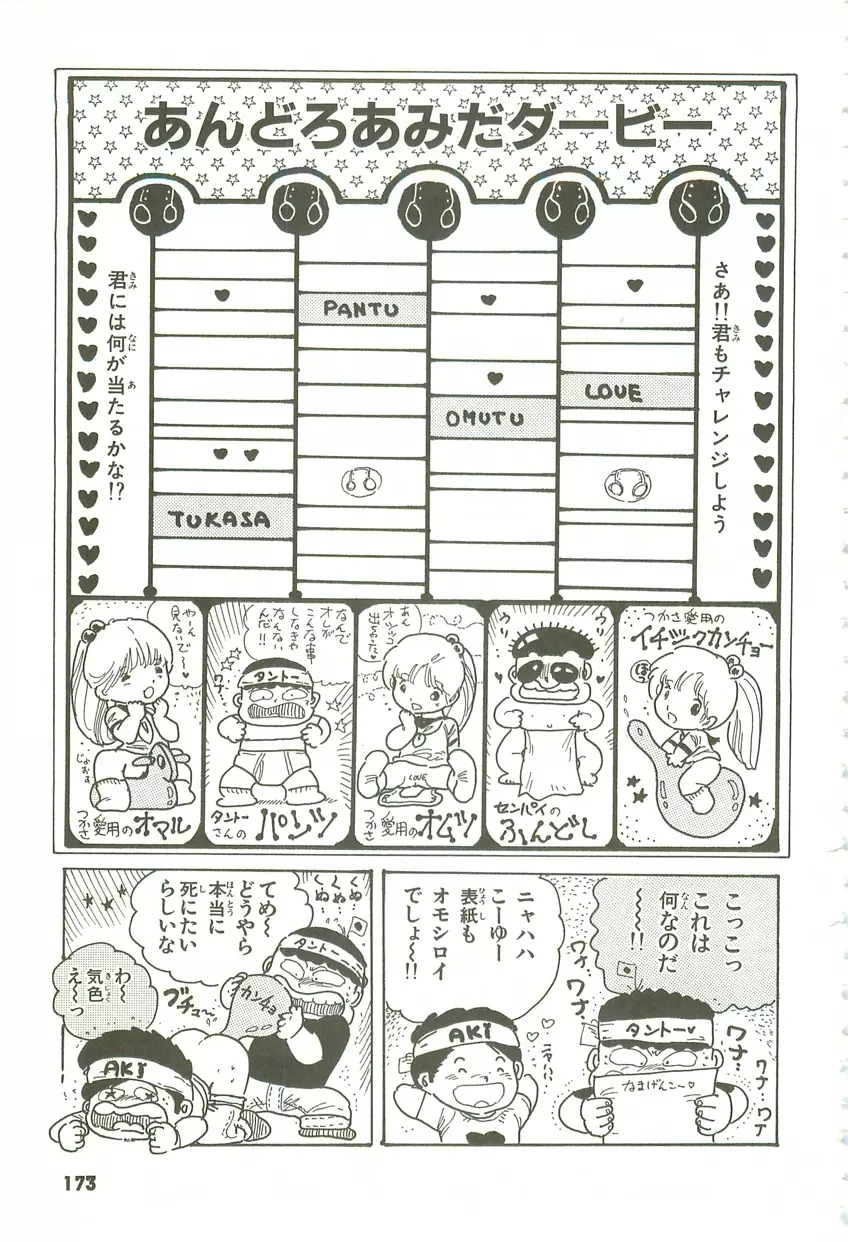 あんどろあみだダービー
さあ!!君もチャレンジしよう
君には何が当たるかな!?
PANTU
LOVE
OMUTU
TUKASA
つかさ愛用の
イチジクカンチョー
ほっ
センパイの
ふんどし
あん
オシッコ
出ちゃった♥
LOVE
つかさ愛用の
オムツ
なんで
オレが
こんな事
しなきゃ
なんない
んだ!!
ワナ
タントー
タントー
さんの
パンツ
やーん
見ないで〜♥
じょぉぉ
つかさ愛用の
オマル
こっこっ
これは
何なのだ
〜〜!!
ワナ、ワナ、
タントー♥
ワナ…
ワナ、ワナ
なまげんこ〜♥
ニャハハ
こーゆー
表紙も
オモシロイ
でしょ〜!!
AKi
くぬ…
くぬ…
くぬ…
タントー
てめ〜
どうやら
本当に
死にたい
らしいな
カンチョ
ブチュ〜
わ〜
気色
え〜っ
AKi
173